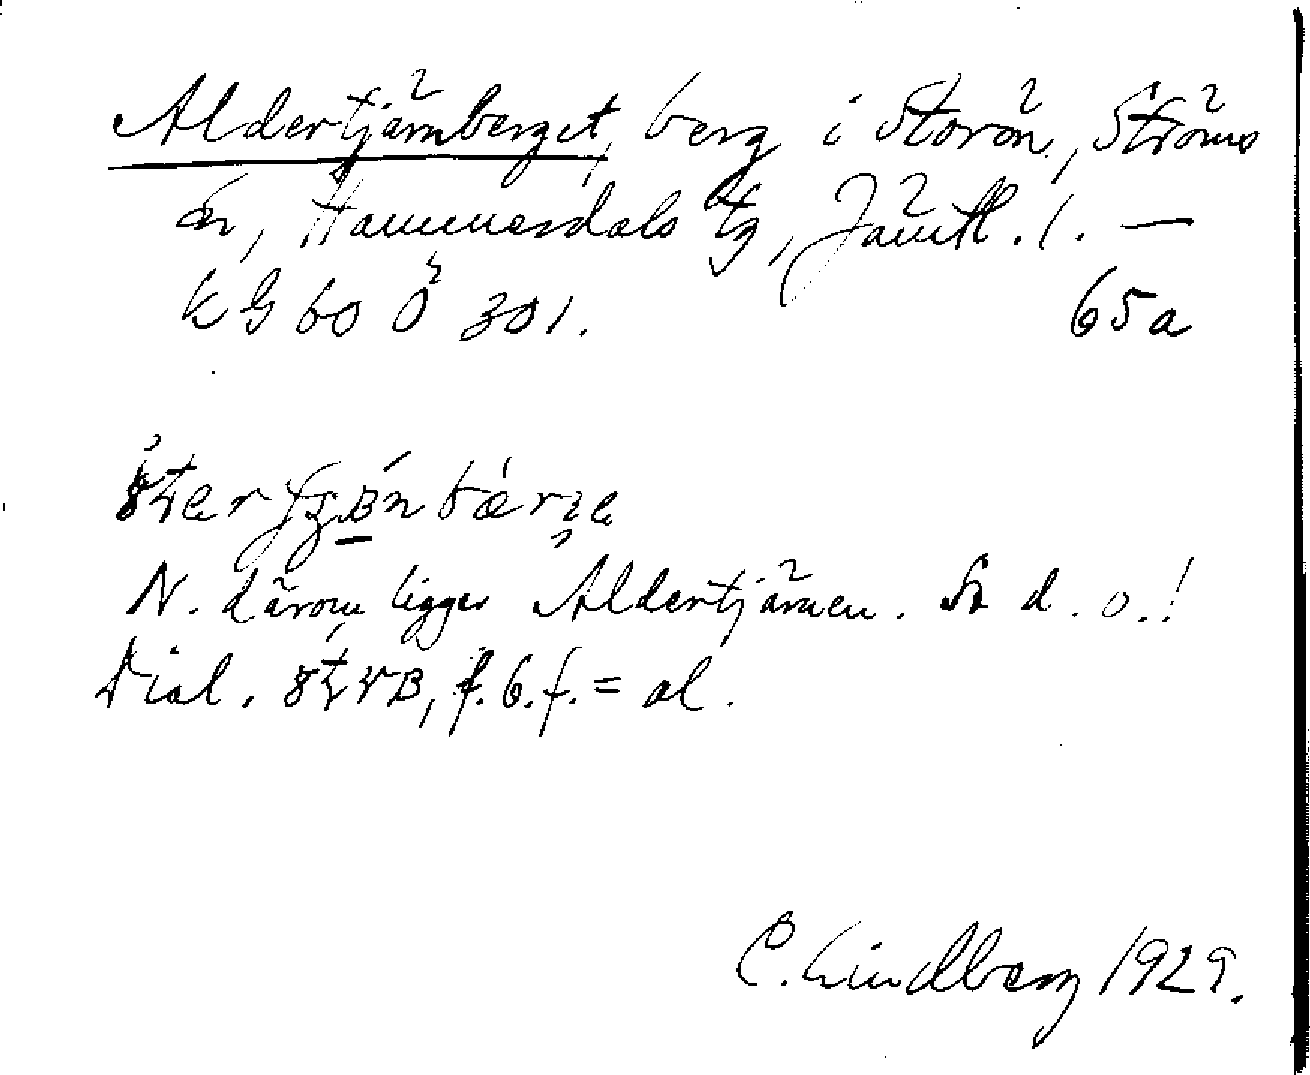 Aldertjärnberget, berg i Storön, Ströms
sn, Hammerdals tg, Jämtl. l. —
kG 60 Ö 301. 65a
N. därom ligger Aldertjärnen. Se d. o.!
Dial. f. b. f. = al.
C. Lindberg 1929.